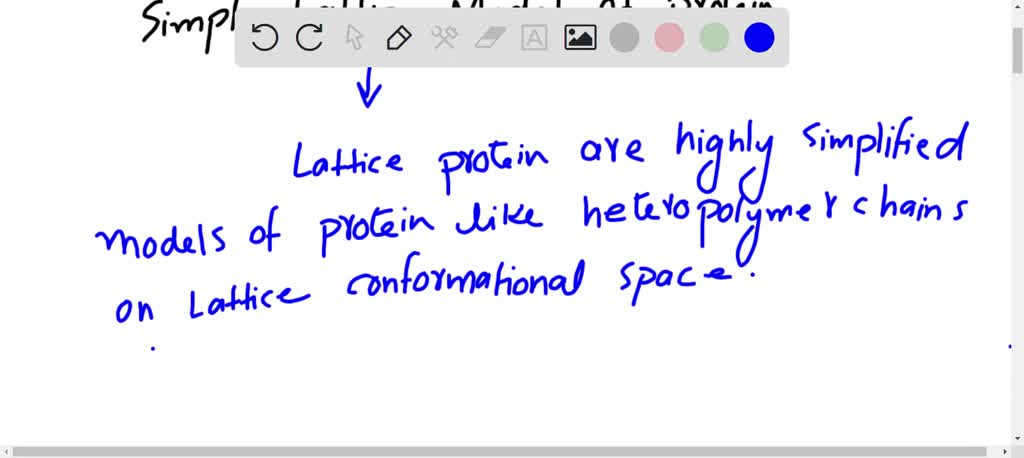 Lattice protein are highly simplified
models of protein like heteropolymer chains
on Lattice conformational space.